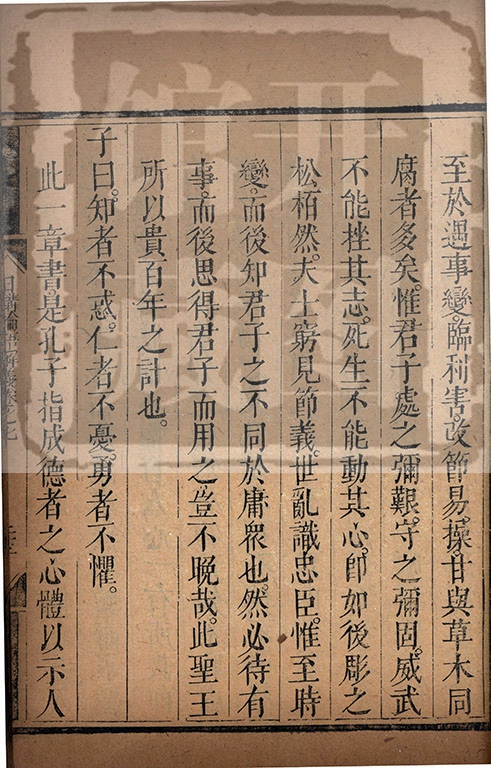 至於遇事變。臨利害。改節易操。甘與草木同
腐者多矣。惟君子處之彌艱。守之彌固。威武
不能挫其志。死生不能動其心。即如後彫之
松栢然。夫士窮見節義。世亂識忠臣。惟至時
變而後知君子之不同於庸衆也。然必待有
事。而後思得君子而用之。豈不晚哉。此聖王
所以貴百年之計也。
子曰。知者不惑。仁者不憂。勇者不懼。
此一章書是孔子指成德者之心體以示人